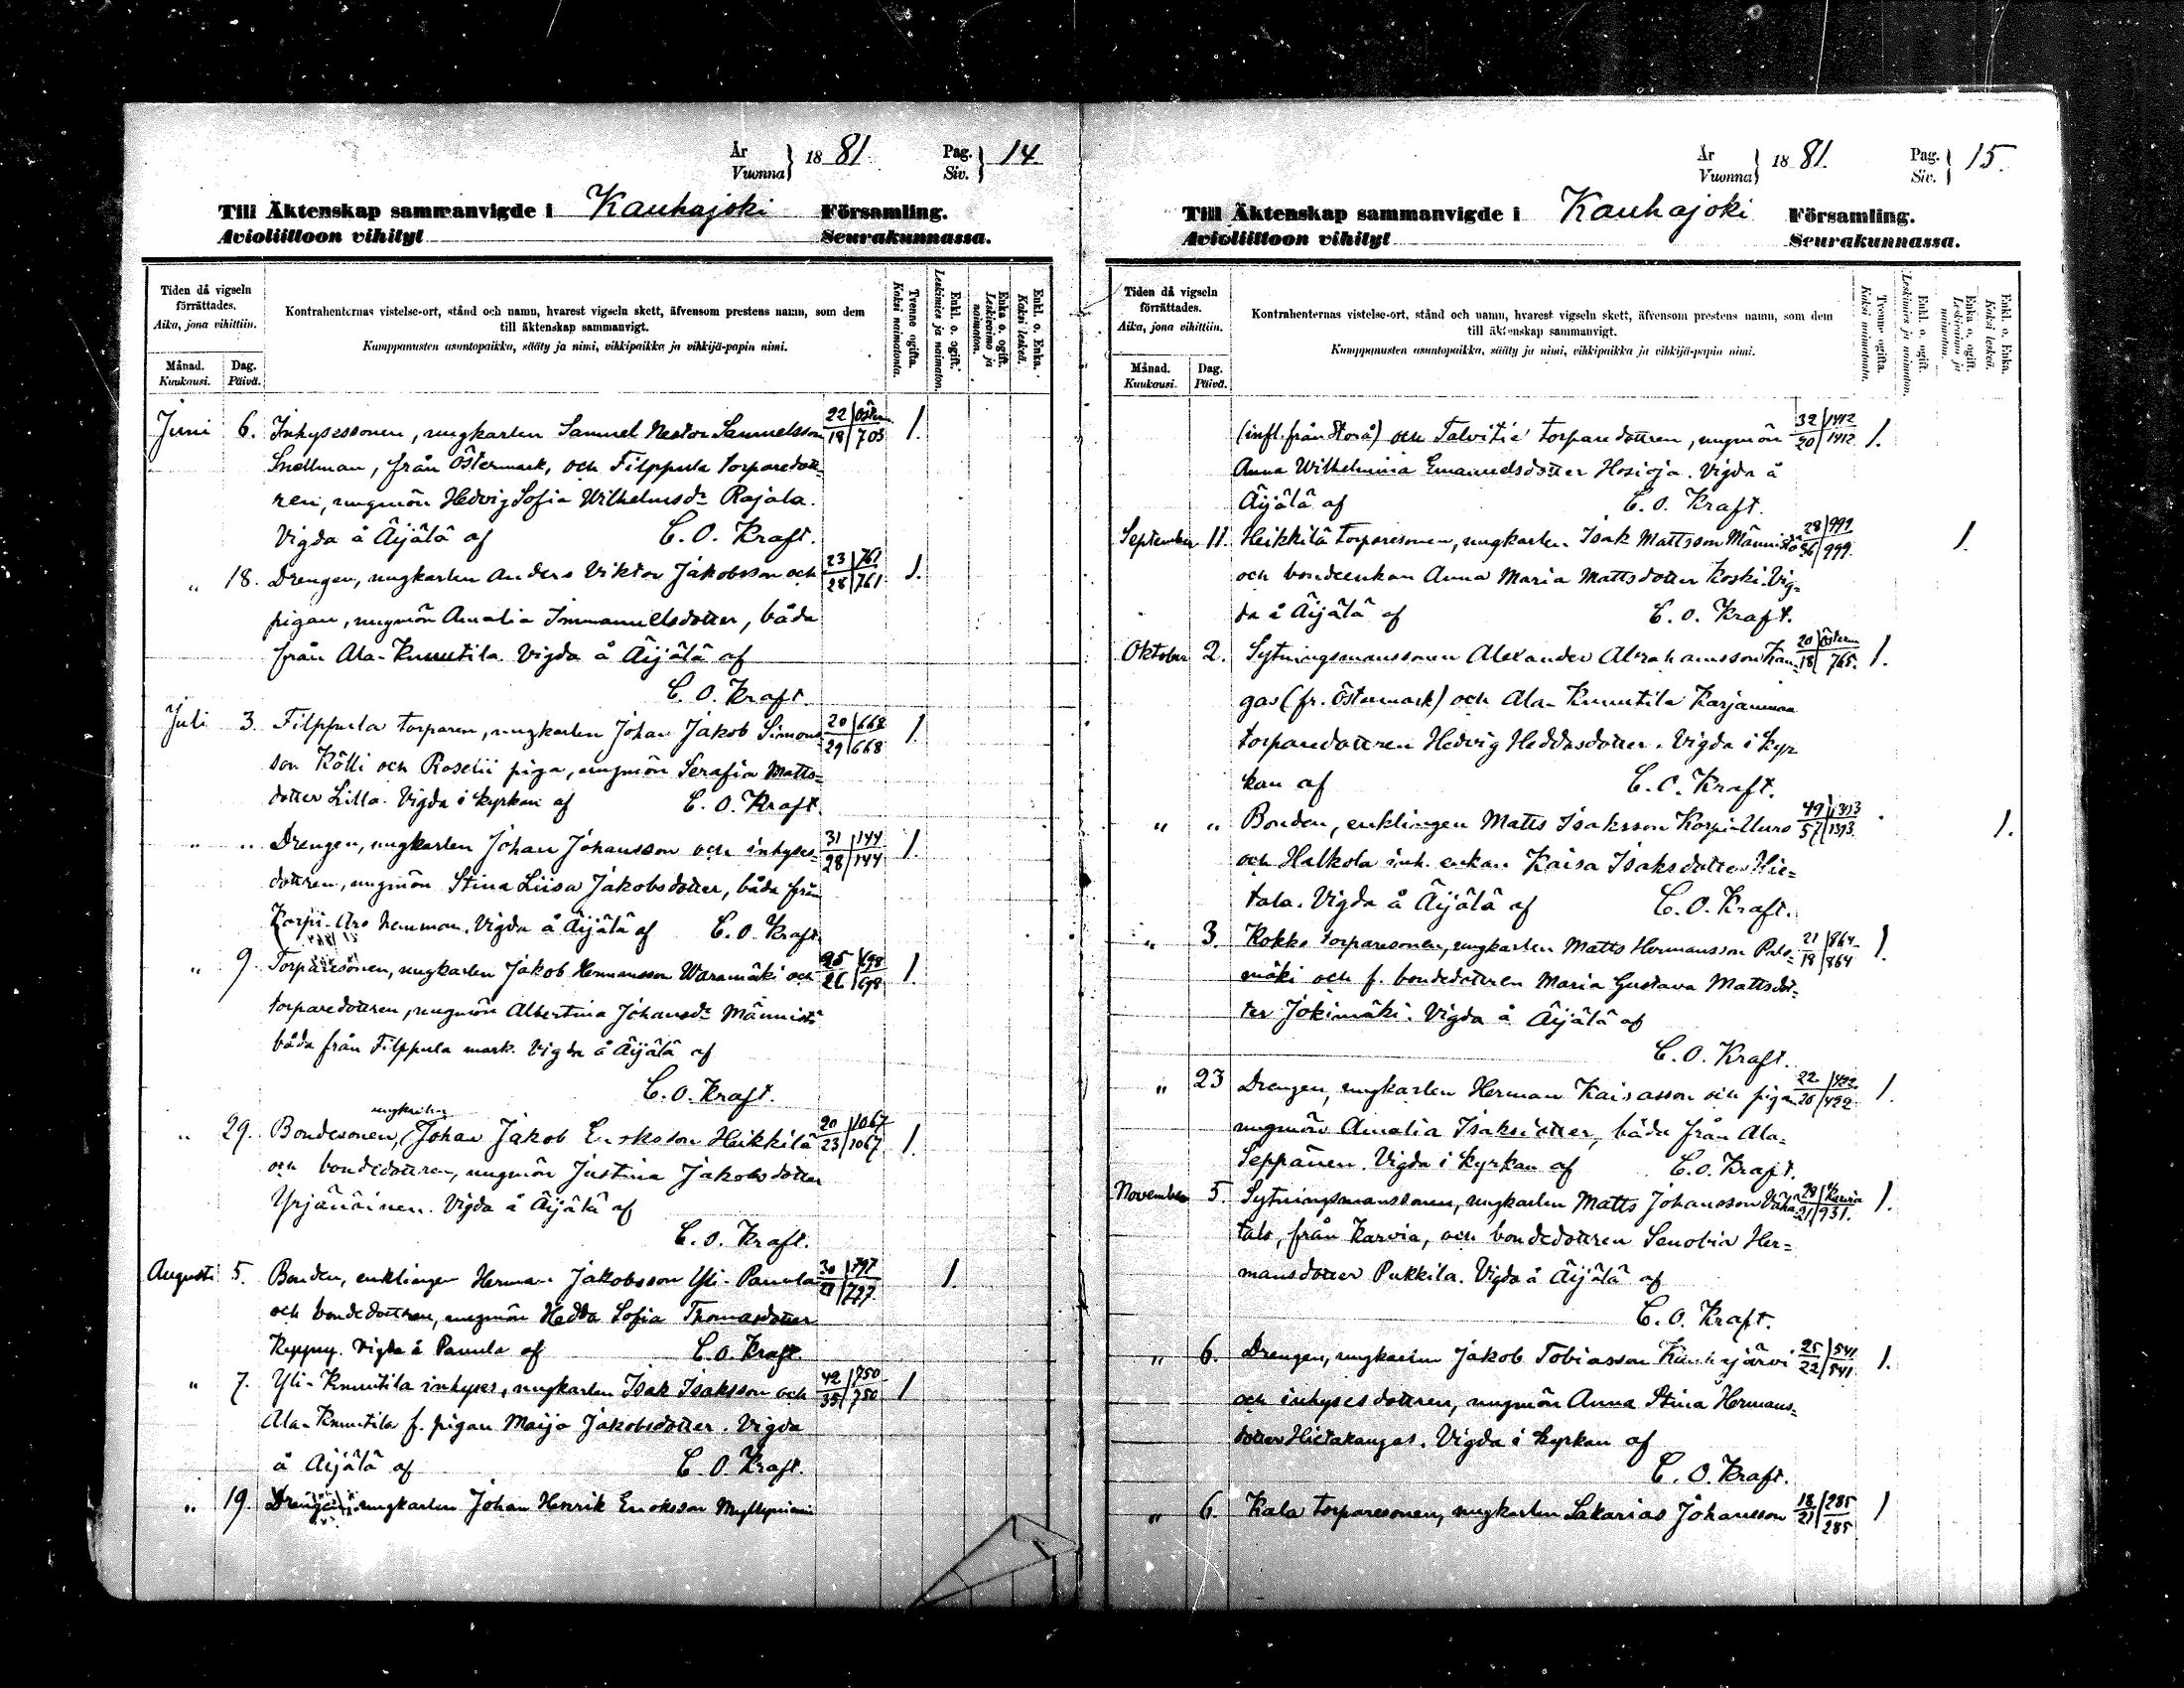 År
Vuonna } 18 81. Pag.
Siv. } 14
Till Äktenskap sammanvigde i Kauhajoki Församling.
Avioliittoon vihityt Seurakunnassa.
Tiden då vigseln förrättades.
Aika, jona vihittiin.
Månad. Kuukausi.
Dag. Päivä.
Kontrahenternas vistelse-ort, stånd och namn, hvarest vigseln skett, äfvensom prestens namn, som dem
till äktenskap sammanvigt.
Kumppanusten asuntopaikka, sääty ja nimi, vihkipaikka ja vihkijä-papin nimi.
Tvenne ogifta. Kaksi naimatonta.
Enkl. o. ogift. Leskimies ja naimaton.
Enka o. ogift. Leskivaimo ja naimaton.
Enkl. o. Enka. Kaksi leskeä.
Juni 6. Inhysessonen, ungkarlen Samuel Nestor Samuelsson 22/18 Österm/703 1.
Snellman, från Östermark, och Filppula torparedott-
ren, ungmön Hedvig Sofia Wilhelmsdr Rajala.
Vigda å Äijälä af C. O. Kraft.
" 18. Drengen, ungkarlen Anders Viktor Jakobsson och 23/28 761/761 1.
pigan, ungmön Amalia Immanuelsdotter, båda
från Ala-Knuutila. Vigda å Äijälä af
C. O. Kraft.
Juli 3. Filppula torparen, ungkarlen Johan Jakob Simons- 20/29 668/668 1.
son Kölli och Roselii piga, ungmön Serafia Matts-
dotter Lilla. Vigda i kyrkan af C. O. Kraft.
" " Drengen, ungkarlen Johan Johansson och inhyses- 31/28 144/144 1.
dottren, ungmön Stina Liisa Jakobsdotter, båda från
Korpi-Aro hemman. Vigda å Äijälä af C. O. Kraft.
" 9. Torparesonen, ungkarlen Jakob Hermansson Waramäki och 25/26 698/698 1.
torparedottren, ungmön Albertina Johansdr Männistö
båda från Filppula mark. Vigda å Äijälä af
C. O. Kraft.
ungkarlen
" 29. Bondesonen, Johan Jakob Eriksson Heikkilä 20/23 1067/1067 1.
och bondedottren, ungmön Justina Jakobsdotter
Yrjänäinen. Vigda å Äijälä af
C. O. Kraft.
Augusti 5. Bonden, enklingen Herman Jakobsson Yli-Panula 30/21 797/797 1.
och bondedottren, ungmön Hedda Sofia Thomasdotter
Reppny. Vigda å Panula af C. O. Kraft.
" 7. Yli-Knuutila inhyses, ungkarlen Isak Isaksson och 42/35 750/750 1
Ala-Knuutila f. pigan Maija Jakobsdotter. Vigda
å Äijälä af C. O. Kraft.
" 19. Drengen, ungkarlen Johan Henrik Eriksson Myllyniemi
År
Vuonna } 18 81. Pag.
Siv. } 15.
Till Äktenskap sammanvigde i Kauhajoki Församling.
Avioliittoon vihityt Seurakunnassa.
Tiden då vigseln förrättades.
Aika, jona vihittiin.
Månad. Kuukausi.
Dag. Päivä.
Kontrahenternas vistelse-ort, stånd och namn, hvarest vigseln skett, äfvensom prestens namn, som dem
till äktenskap sammanvigt.
Kumppanusten asuntopaikka, sääty ja nimi, vihkipaikka ja vihkijä-papin nimi.
Tvenne ogifta. Kaksi naimatonta.
Enkl. o. ogift. Leskimies ja naimaton.
Enka o. ogift. Leskivaimo ja naimaton.
Enkl. o. Enka. Kaksi leskeä.
(infl. från Storå) och Talvitie torparedottren, ungmön 32/20 1412/1412 1.
Anna Wilhelmina Emanuelsdotter Hosioja. Vigda å
Äijälä af C. O. Kraft.
September 11. Heikkilä torparesonen, ungkarlen Isak Mattsson Männistö 28/36 999/999 1.
och bondeenkan Anna Maria Mattsdotter Koski. Vig-
da å Äijälä af C. O. Kraft.
Oktober 2. Sytningsmanssonen Alexander Abrahamsson Kan- 20/18 Österm/765. 1.
gas (fr. Östermark) och Ala-Knuutila Karjanmaa
torparedottren Hedvig Heddasdotter. Vigda i kyr-
kan af C. O. Kraft.
" " Bonden, enklingen Matts Isaksson Korpi-Uuro 49/57 1393/1393 1.
och Halkola inh. enkan Kaisa Isaksdotter Hie-
tala. Vigda å Äijälä af C. O. Kraft.
" 3. Kokko torparesonen, ungkarlen Matts Hermansson Palo- 21/19 864/864 1.
mäki och f. bondedottren Maria Gustava Mattsdot-
ter Jokimäki. Vigda å Äijälä af
C. O. Kraft.
" 23 Drengen, ungkarlen Herman Kaisasson och pigan 22/20 492/492 1.
ungmön Amalia Isaksdotter, båda från Ala-
Seppänen. Vigda i kyrkan af C. O. Kraft.
November 5. Sytningsmanssonen, ungkarlen Matts Johansson Vähä- 20/21 Karvia/931. 1.
talo, från Karvia, och bondedottren Senobia Her-
mansdotter Pukkila. Vigda å Äijälä af
C. O. Kraft.
" 6. Drengen, ungkarlen Jakob Tobiasson Kauhajärvi 25/22 541/541 1.
och inhysesdottren, ungmön Anna Stina Hermans-
dotter Hietakangas. Vigda i kyrkan af
C. O. Kraft.
" 6. Kala torparesonen, ungkarlen Sakarias Johansson 18/21 285/285 1